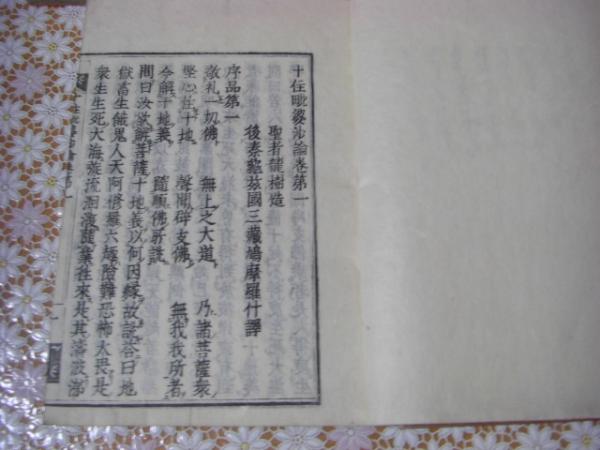 十住毗婆沙論卷第一
聖者龍樹造
後秦龜茲國三藏鳩摩羅什譯
序品第一
敬礼一切佛 無上之大道 乃諸菩薩衆
堅心住十地 聲聞辟支佛 無我我所者
今解十地義 隨順佛所説
問曰汝欲解菩薩十地義以何因縁故説荅曰地
獄畜生餓鬼人天阿修羅六趣險難恐怖大畏是
衆生生死大海旋流洄澓隨業往來是其濤波涕